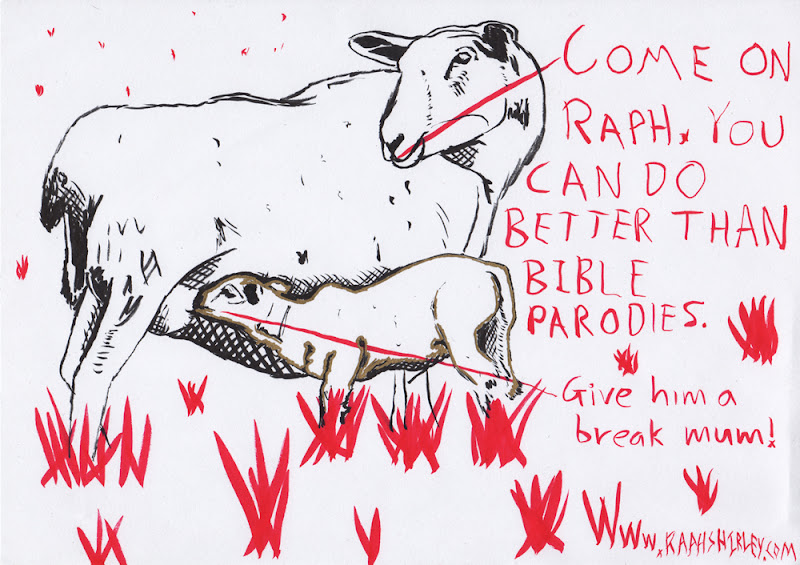 COME ON
RAPH. YOU
CAN DO
BETTER THAN
BIBLE
PARODIES.
Give him a
break mum!
Www.RAPHSHIRLEY.COM